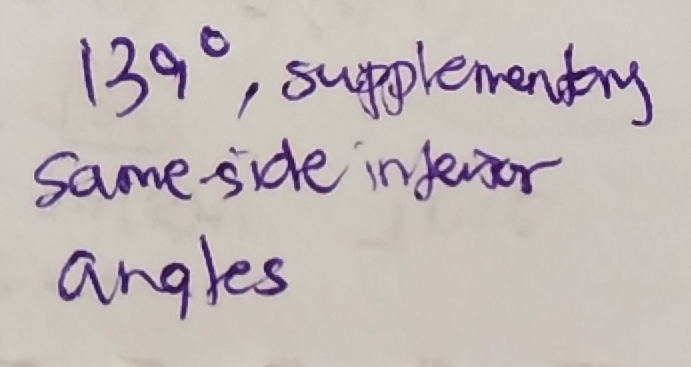 139°, supplementary
same-side interior
angles